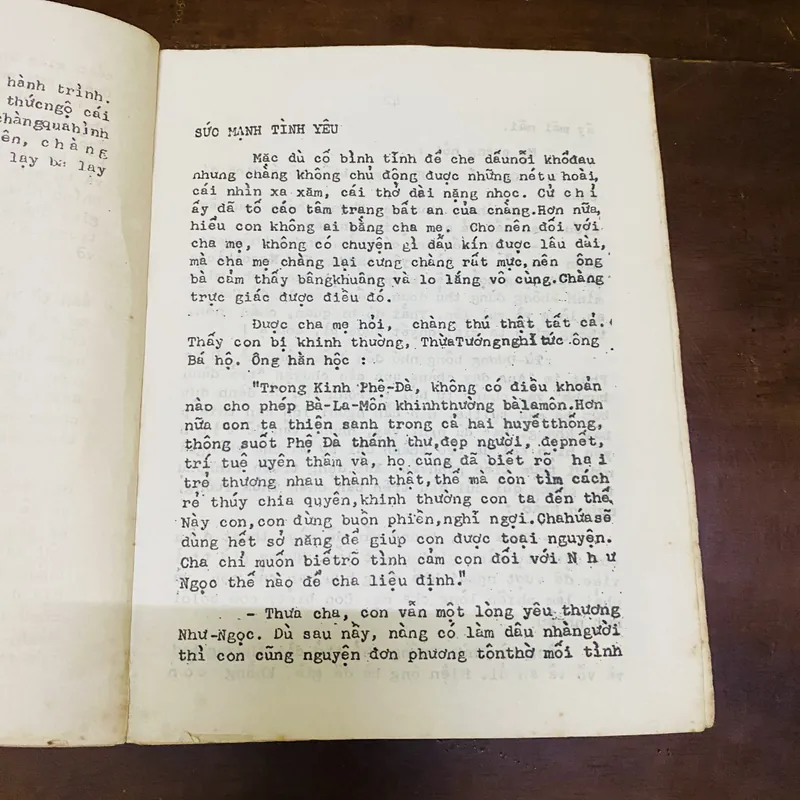 hành trình.
thứcngộ cái
chàngquahình
ên, chàng
lạy bè lạy
SỨC MẠNH TÌNH YÊU
Mặc dù cố bình tĩnh để che dấunỗi khổđau
nhưng chàng không chủ động được những nétu hoài,
cái nhìn xa xăm, cái thở dài nặng nhọc. Cử chỉ
ấy đã tố cáo tâm trạng bất an của chàng.Hơn nữa,
hiểu con không ai bằng cha mẹ. Cho nên đối với
cha mẹ, không có chuyện gì dấu kín được lâu dài,
mà cha mẹ chàng lại cưng chàng rất mực,nên ông
bà cảm thấy bângkhuâng và lo lắng vô cùng.Chàng
trực giác được điều đó.
Được cha mẹ hỏi, chàng thú thật tất cả.
Thấy con bị khinh thường, ThừaTướngnghỉ tức ông
Bá hộ. Ông hằn học :
"Trong Kinh Phệ-Đà, không có điều khoản
nào cho phép Bà-La-Môn khinhthường bàlamôn.Hơn
nữa con ta thiện sanh trong cả hai huyếtthống,
thông suốt Phệ Đà thánh thư,đẹp người, đẹpnết,
trí tuệ uyên thâm và, họ cũng đã biết rõ hai
trẻ thương nhau thành thật,thế mà còn tìm cách
rẻ thúy chia quyên,khinh thường con ta đến thế.
Này con,con đừng buồn phiền,nghỉ ngợi.Chahứasẽ
dùng hết sở năng để giúp con được toại nguyện.
Cha chỉ muốn biếtrõ tình cảm con đối với Như
Ngọc thế nào để cha liệu định."
- Thưa cha, con vẫn một lòng yêu thương
Như-Ngọc. Dù sau nầy, nàng có làm dâu nhàngười
thì con cũng nguyện đơn phương tônthờ mối tình